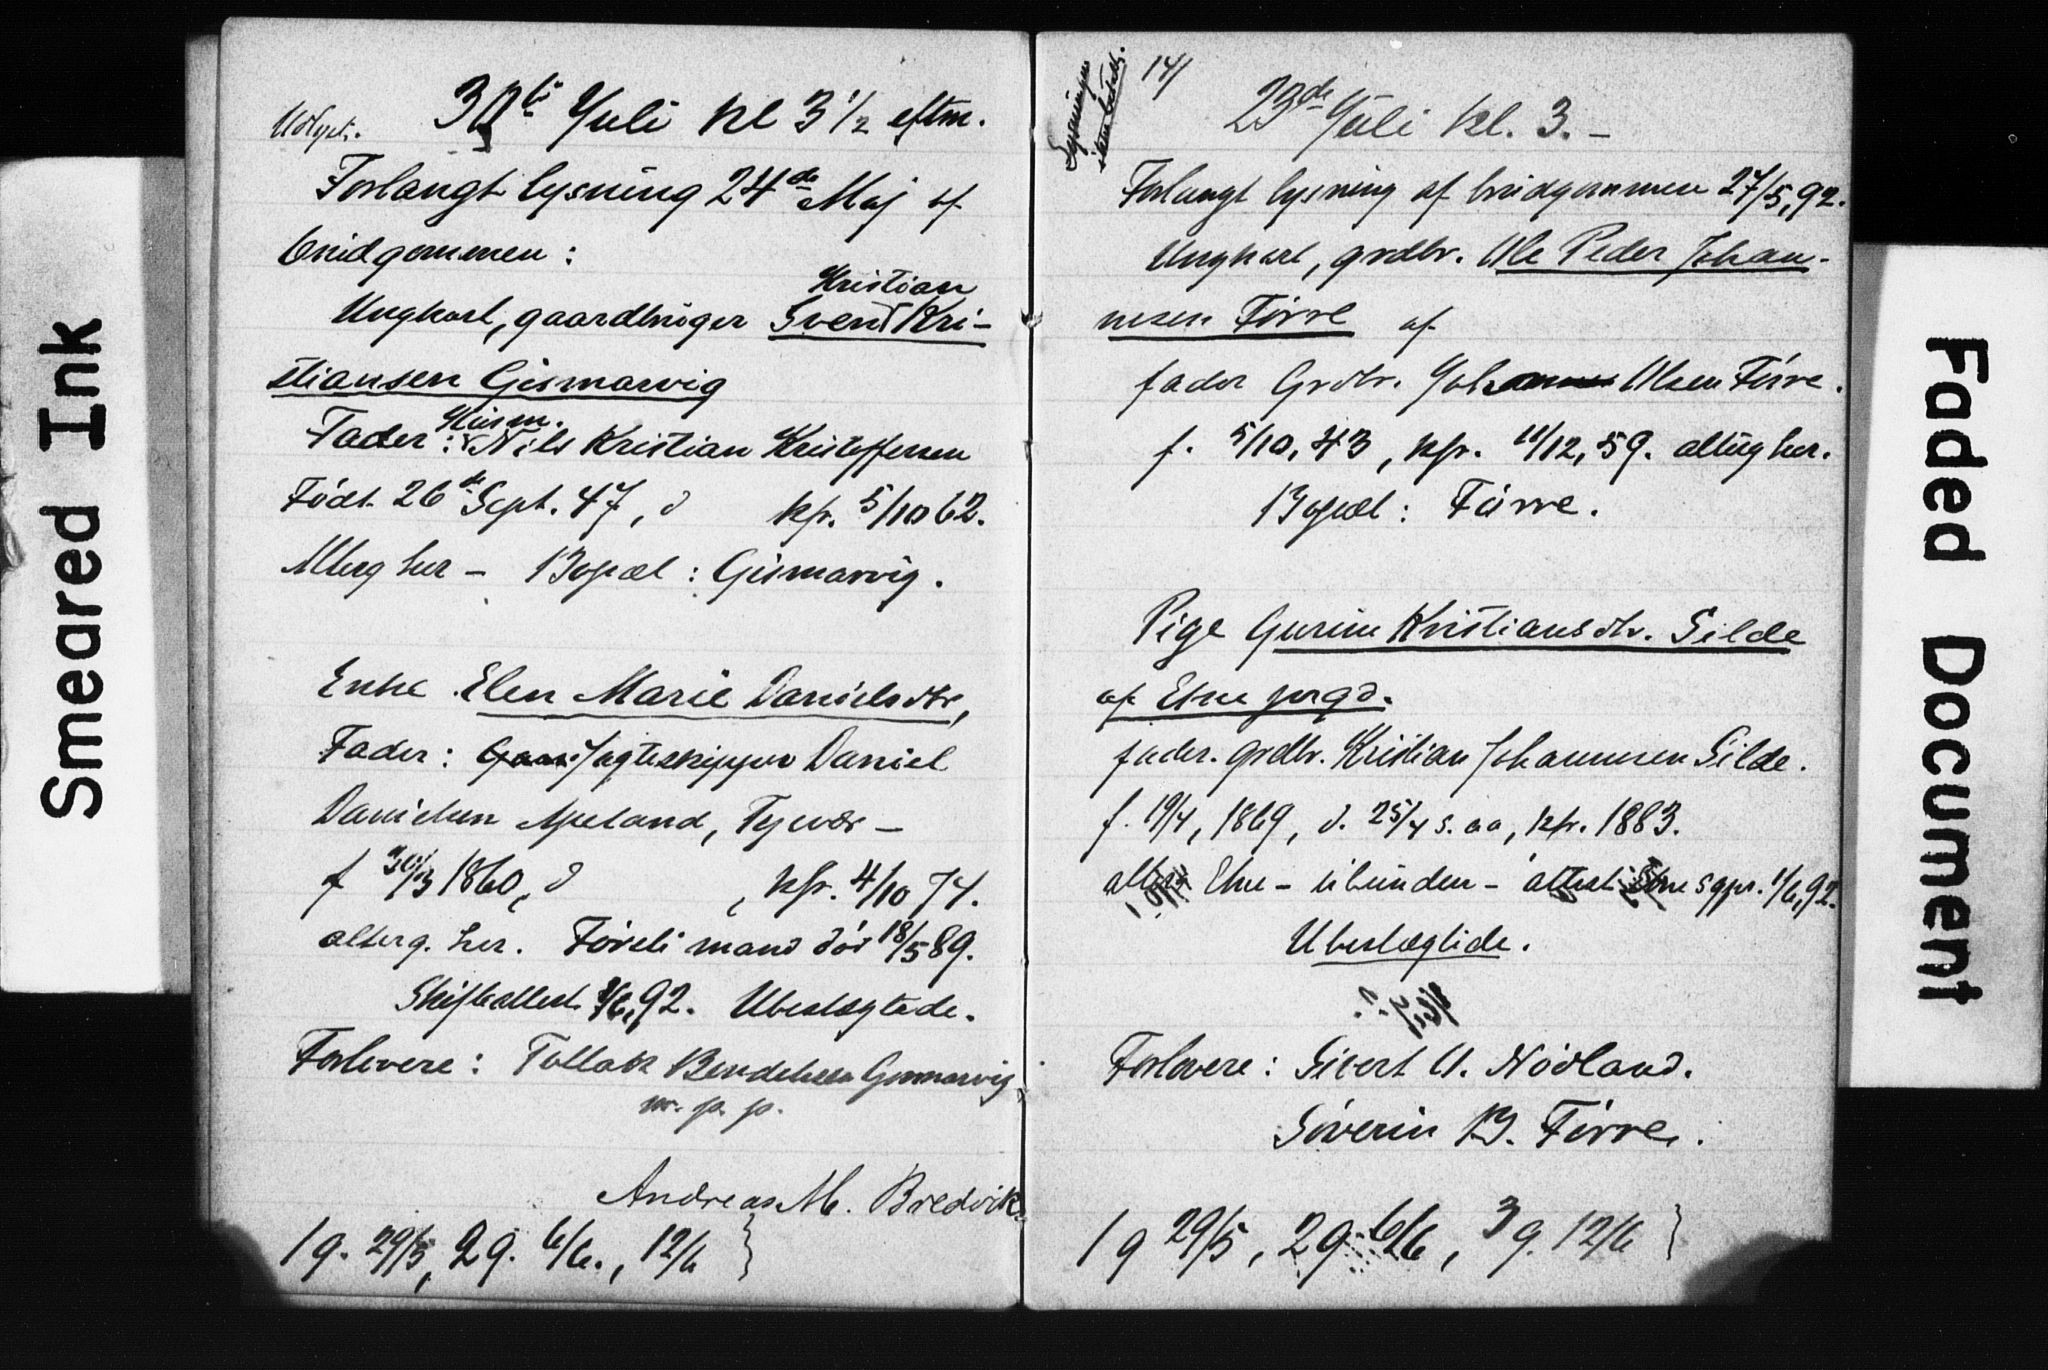 Smeared Ink
30te Juli kl 3 1/2 eftm.
Forlangt lysning 24de Maj af
brudgommen:
Kristian
Ungkarl, gaardbruger Svend Kri-
stiansen Gismarvig
Husm.
Fader: Nils Kristian Kristoffersen
Født 26de Sept. 47, d kfr. 5/10 62.
Alterg her – Bopæl: Gismarvig.
Enke Elen Marie Danielsdtr,
Fader: Jagteskipper Daniel
Danielsen Apeland, Tysvær –
f 30/3 1860, d , kfr. 4/10 74.
alterg. her. Første mand død 18/5 89.
Skifteattest /6, 92. Ubeslægtede.
Forlovere: Tollak Bendiksen Gismarvig
m. p. p.
Andreas M. Bredvik
1 g. 29/5, 2 g. 6/6., 12/6 }
Lysningen
14/
23de Juli kl. 3. –
Forlangt lysning af brudgommen 27/5, 92.
Ungkarl, grdbr. Ole Peder Johan-
nesen Førre af
fader Grdbr. Johannes Olsen Førre.
f. 5/10, 43, kfr. 11/12, 59. alterg her.
Bopæl: Førre.
Pige Gurine Kristiansdtr. Silde
af Etne prgd.
fader. grdbr. Kristian Johannesen Silde.
f. 19/4, 1869, d. 25/4 s. aa, kfr. 1883.
Etne – ubunden – attest Etne sgpr. 1/6, 92.
Ubeslægtede.
Forlovere: Sivert A. Nødland.
Søverin B. Førre.
1 g 29/5, 2 g. 6/6, 3 g. 12/6 }
Faded Document